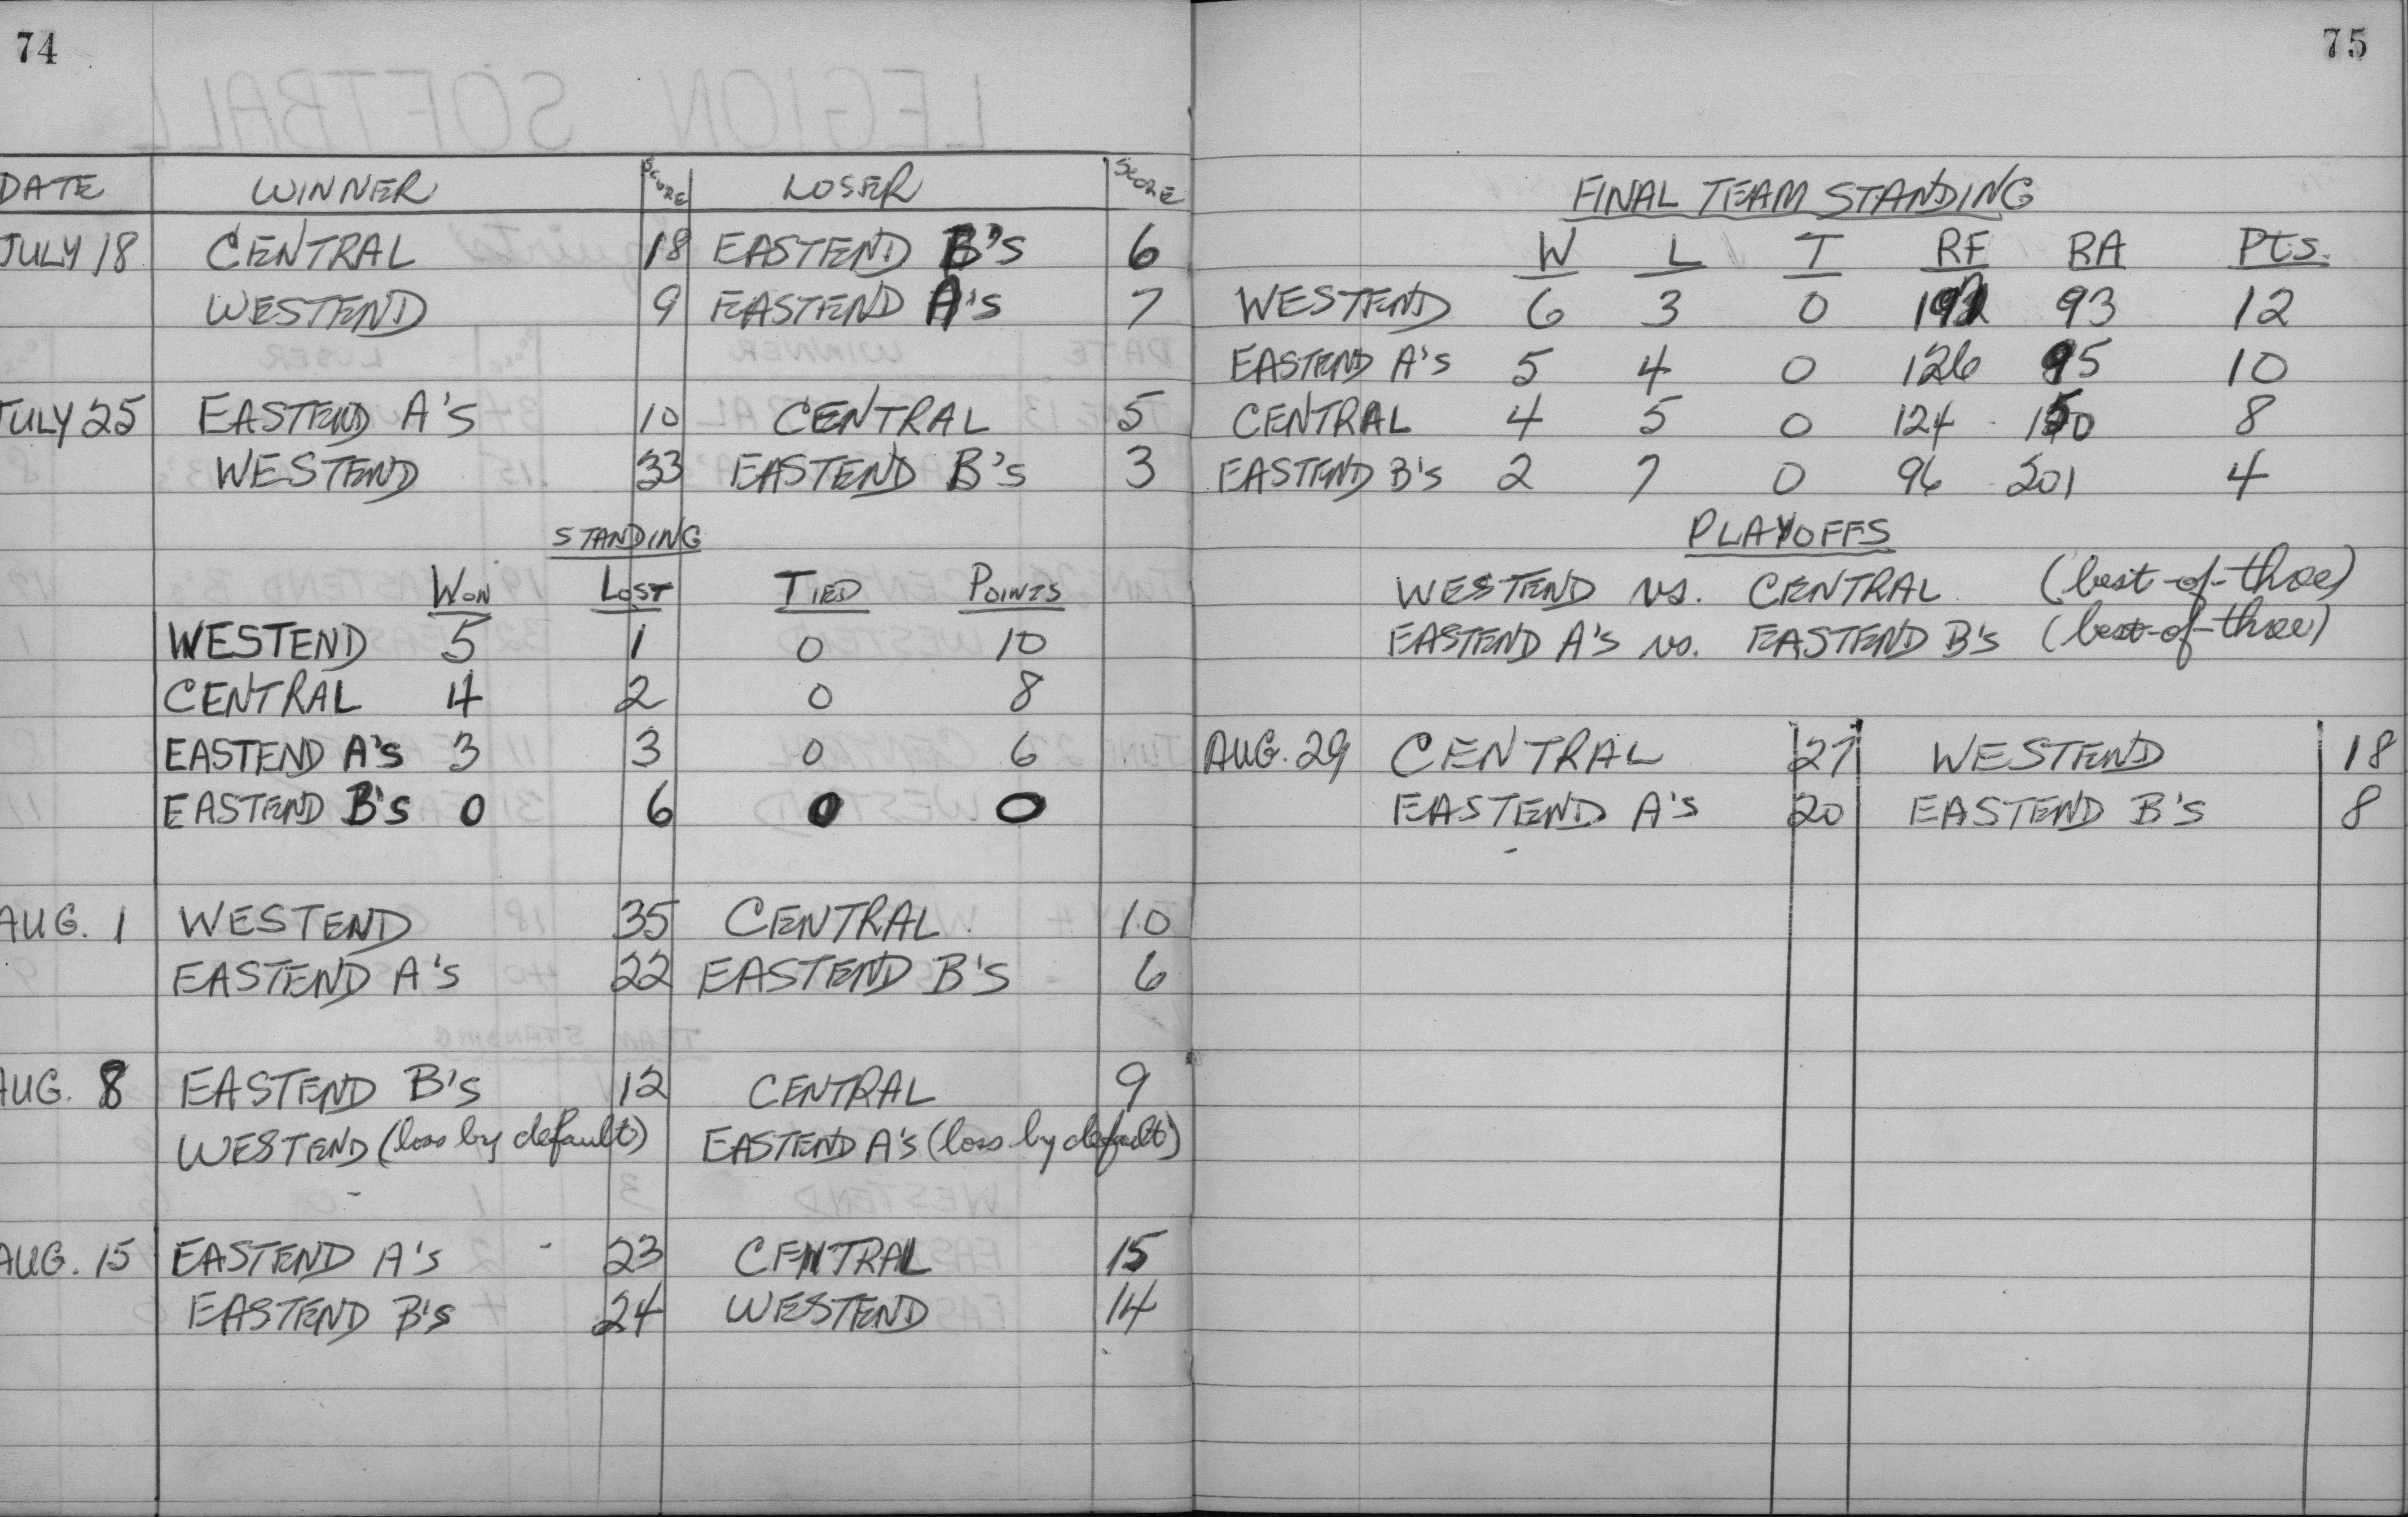 74
DATE WINNER SCORE LOSER SCORE
JULY 18 CENTRAL 18 EASTEND B's 6
WESTEND 9 EASTEND A's 7
JULY 25 EASTEND A's 10 CENTRAL 5
WESTEND 33 EASTEND B's 3
STANDING
WON LOST TIED POINTS
WESTEND 5 1 0 10
CENTRAL 4 2 0 8
EASTEND A's 3 3 0 6
EASTEND B's 0 6 0 0
AUG. 1 WESTEND 35 CENTRAL 10
EASTEND A's 22 EASTEND B's 6
AUG. 8 EASTEND B's 12 CENTRAL 9
WESTEND (loss by default) EASTEND A's (loss by default)
AUG. 15 EASTEND A's 23 CENTRAL 15
EASTEND B's 24 WESTEND 14
75
FINAL TEAM STANDING
W L T RF RA Pts.
WESTEND 6 3 0 93 12
EASTEND A's 5 4 0 126 95 10
CENTRAL 4 5 0 124 150 8
EASTEND B's 2 7 0 96 201 4
PLAYOFFS
WESTEND vs. CENTRAL (best-of-three)
EASTEND A's vs. EASTEND B's (best-of-three)
AUG. 29 CENTRAL 27 WESTEND 18
EASTEND A's 20 EASTEND B's 8